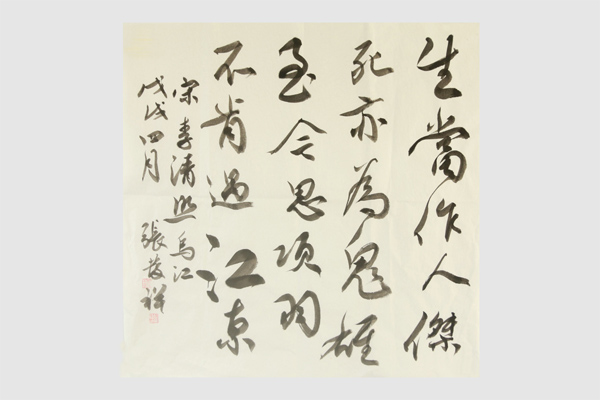 生當作人傑
死亦為鬼雄
至今思項羽
不肯過江東
宋李清照烏江
戊戌四月 張發祥